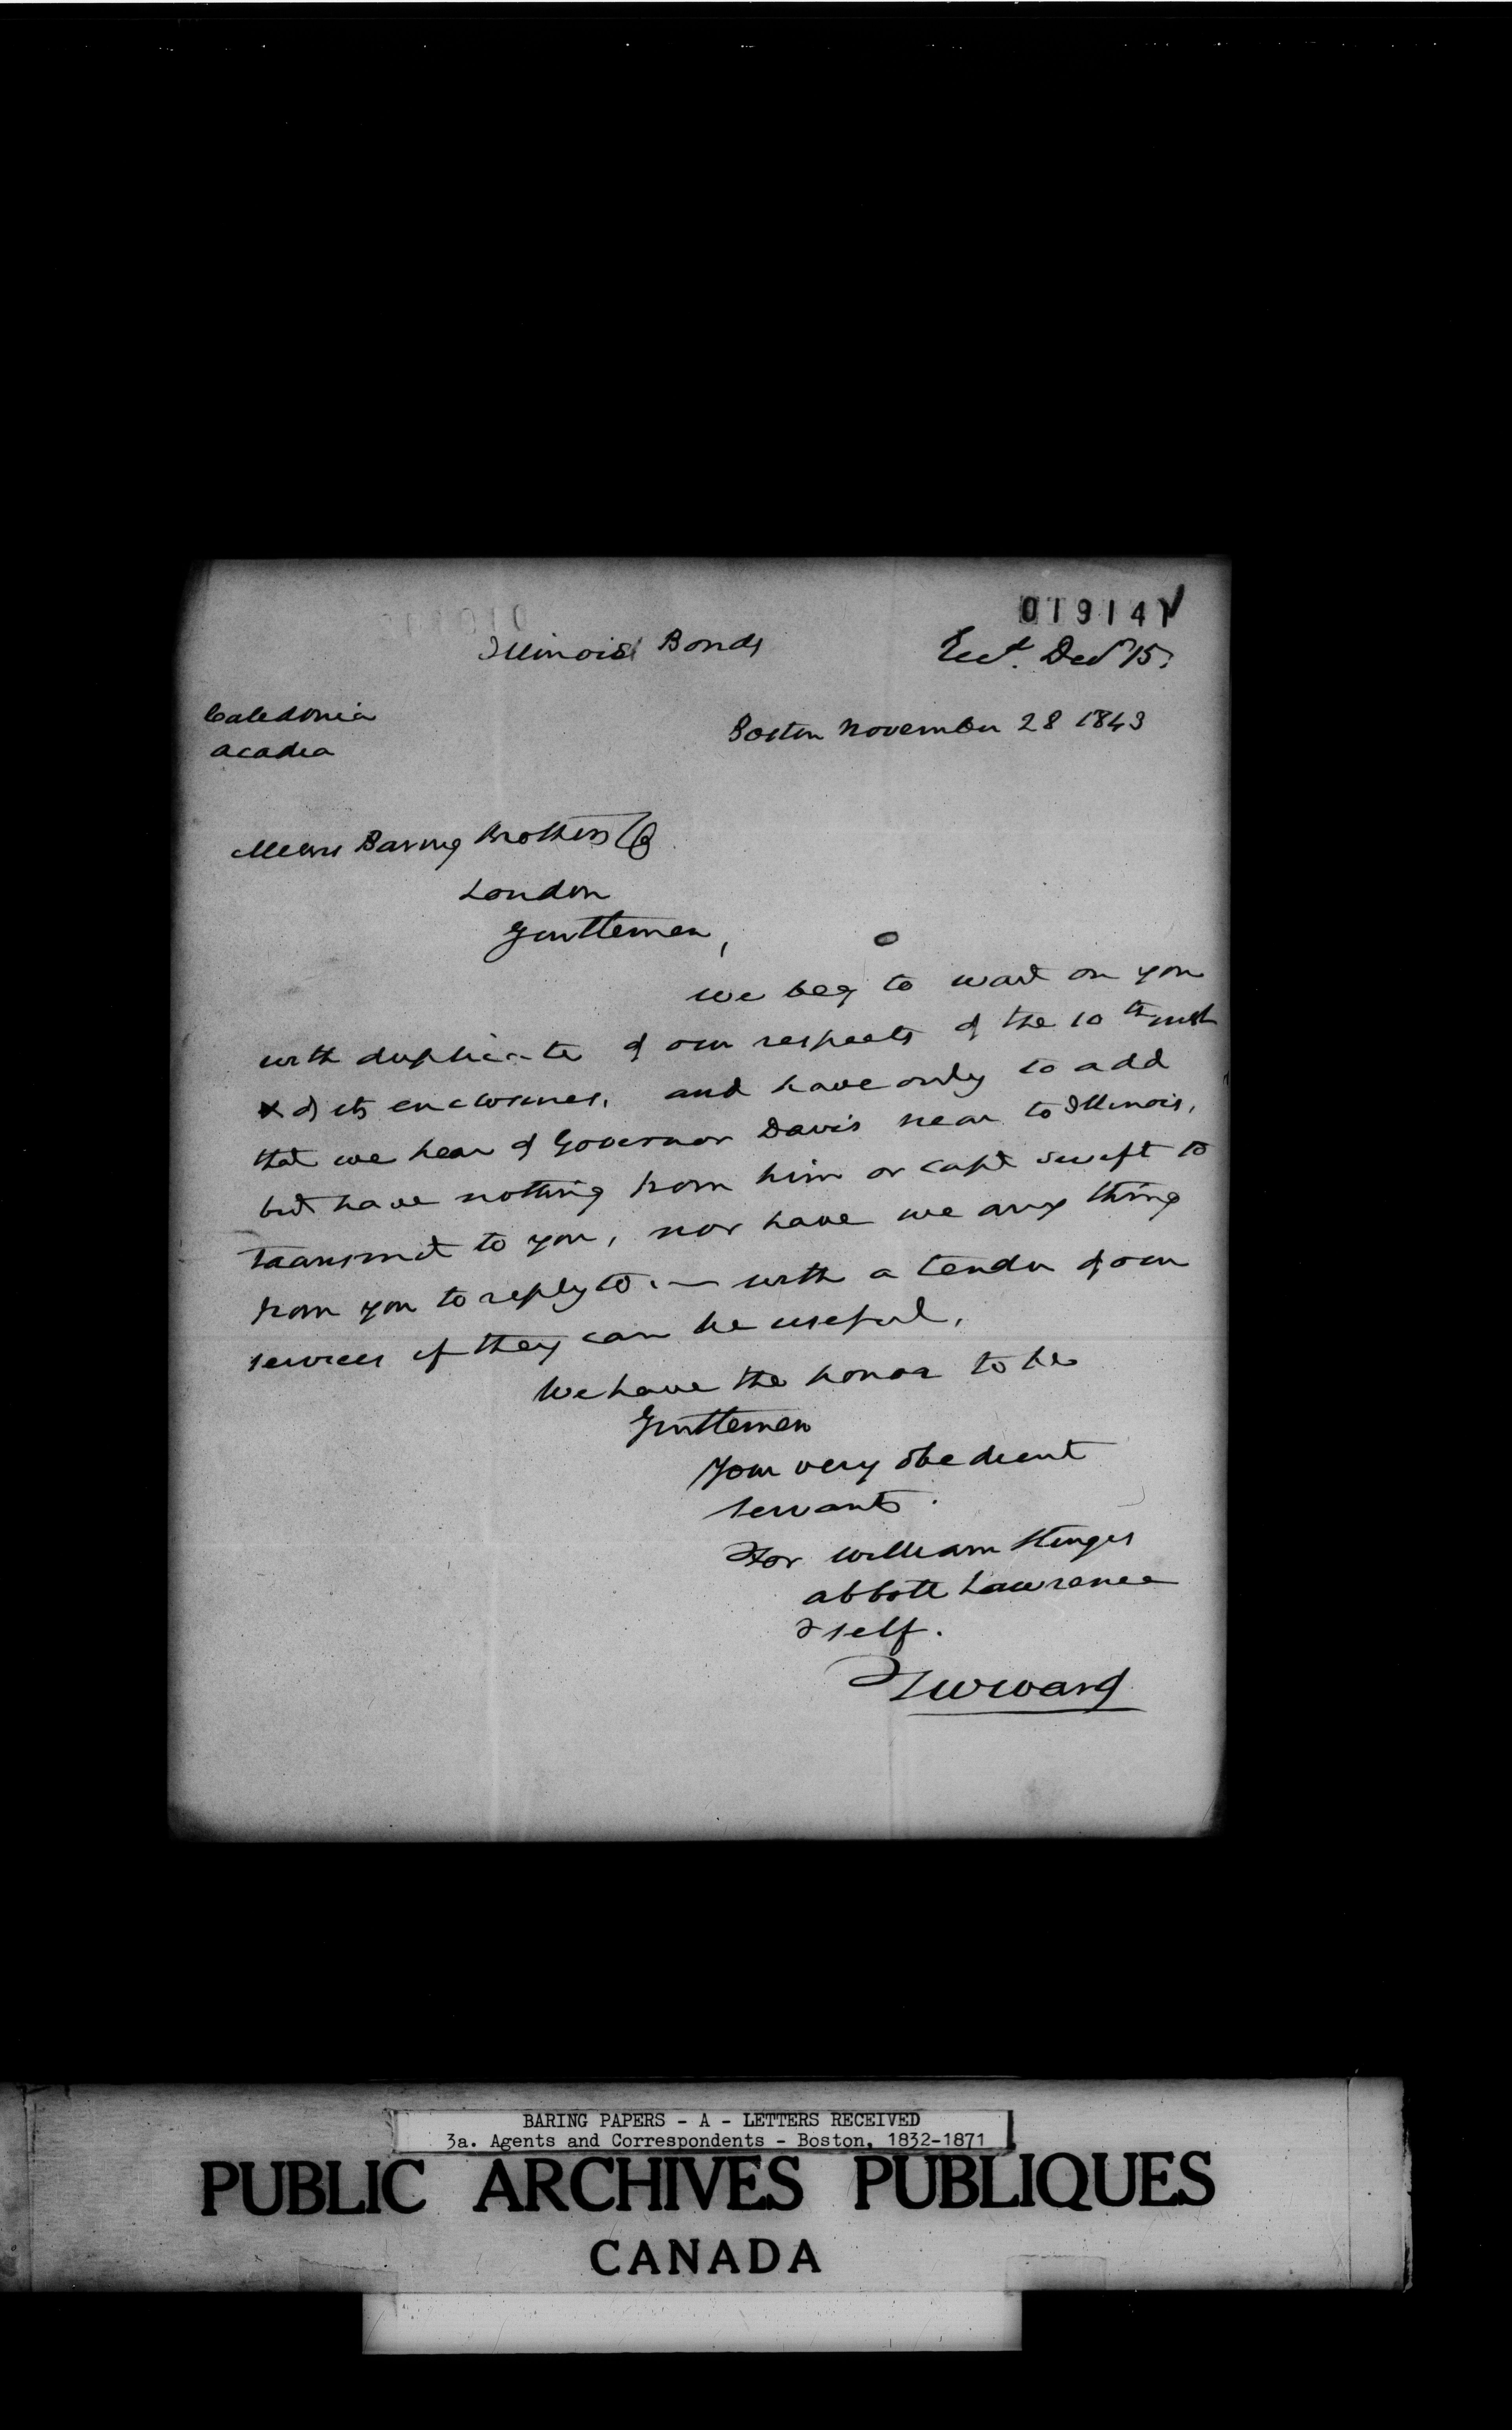 019141
Illinois Bonds
Recd. Decr 15.
Caledonia
Acadia
Boston November 28 1843
Messrs Baring Brothers & Co
London
Gentlemen,
we beg to wait on you
with duplicate of our respects of the 10th inst
& of its enclosures, and have only to add
that we hear of Governor Davis near to Illinois,
but have nothing from him or Capt Swift to
transmit to you, nor have we any thing
from you to reply to. — with a tender of our
services if they can be useful,
We have the honor to be
Gentlemen
Your very obedient
servants.
For William Sturgis
Abbott Lawrence
& self.
T W Ward
BARING PAPERS - A - LETTERS RECEIVED
3a. Agents and Correspondents - Boston, 1832-1871
PUBLIC ARCHIVES PUBLIQUES
CANADA